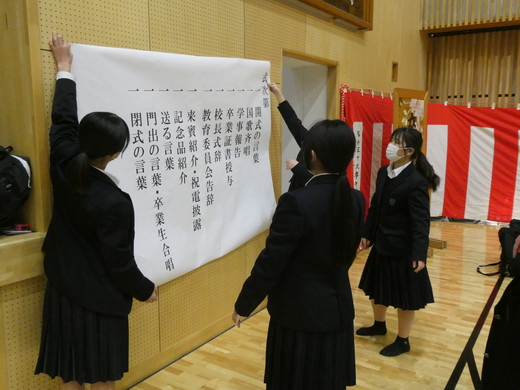 式次第
一 開式の言葉
一 国歌斉唱
一 学事報告
一 卒業証書授与
一 校長式辞
一 教育委員会告辞
一 来賓紹介・祝電披露
一 記念品紹介
一 送る言葉
一 門出の言葉・卒業生合唱
一 閉式の言葉